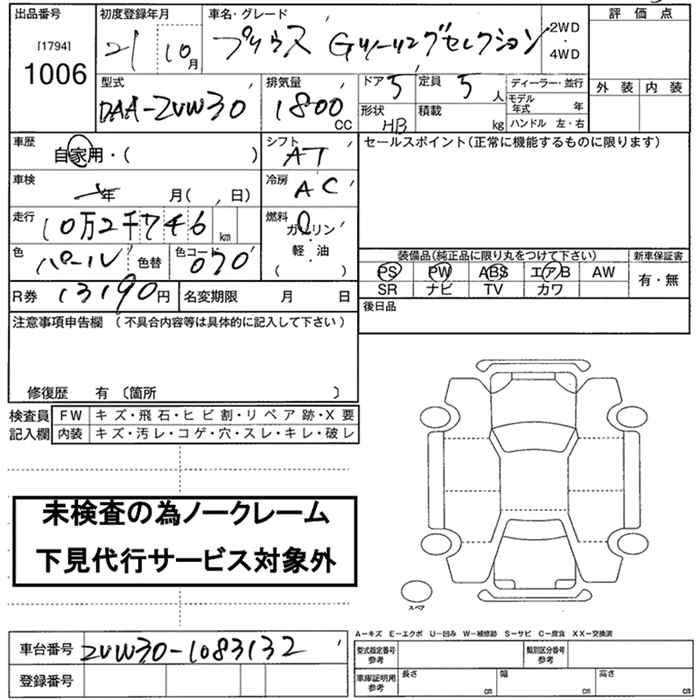 出品番号
[1794]
1006
初度登録年月
21 10月
車名・グレード
プリウス Gツーリングセレクション
2WD
・
4WD
評価点
外装 内装
型式
DAA-ZVW30
排気量
1800
CC
ドア 5
形状 HB
定員 5人
積載 kg
ディーラー・並行
モデル年式 年
ハンドル 左・右
車歴
自家用・( )
シフト
AT
セールスポイント(正常に機能するものに限ります)
車検
年 月( 日)
冷房
AC
走行
10万2千746 km
燃料
ガソリン
・
軽・油
( )
色
パール 色替
色コード
070
装備品(純品正に限り丸をつけて下さい)
PS PW ABS エアB AW
SR ナビ TV カワ
新車保証書
有・無
R券 13190円
名変期限 月 日
後日品
注意事項申告欄 (不具合内容等は具体的に記入して下さい)
修復歴 有 〔箇所 〕
検査員
記入欄
FW キズ・飛石・ヒビ割・リペア跡・X要
内装 キズ・汚レ・コゲ・穴・スレ・キレ・破レ
未検査の為ノークレーム
下見代行サービス対象外
スペア
車台番号 ZVW30-1083132
登録番号
A-キズ E-エクボ U-凹み W-補修跡 S-サビ C-腐食 XX-交換済
型式指定番号
参考
類別区分番号
参考
車庫証明用
参考
長さ cm
幅 cm
高さ cm